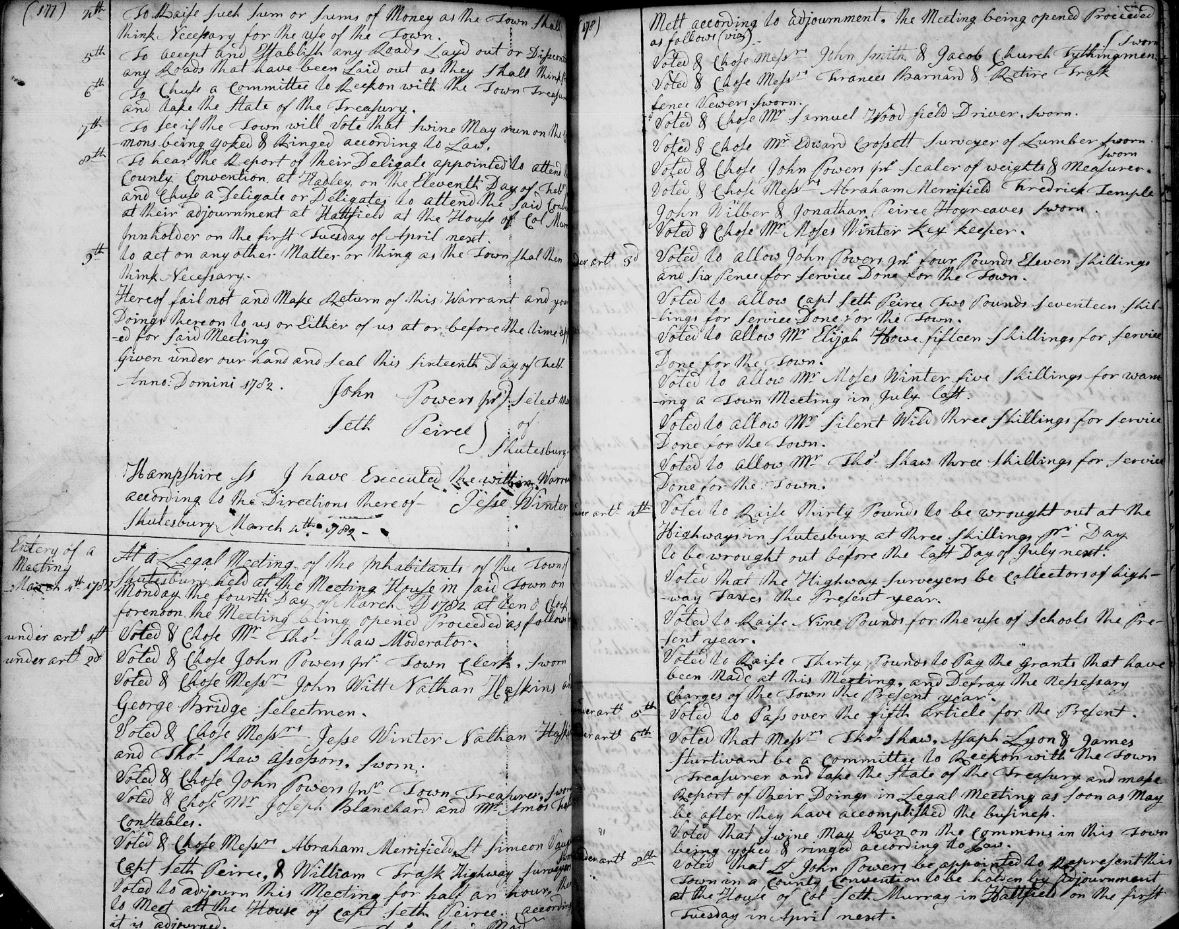 (177)
4th To Raise such sum or sums of Money as the Town Shall
think Necesary for the use of the Town.
5th To accept and Establish any Roads Layd out or
any Roads that have been Laid out as they shall think
6th To Chuse a Committee to Reckon with the Town Treasu
and take the State of the Treasury.
7th To see if the Town will Vote that Swine May run on the
mons being yoked & Ringed according to Law.
8th To hear the Report of their Deligate appointed to attend
County Convention at Hadley on the Eleventh Day of Feb
and Chuse a Deligate or Deligates to attend the said Con
at their adjournment at Hattfield at the House of Col Murr
Innholder on the first Tuesday of April next.
9th to act on any other Matter or thing as the Town shal then
think Necesary.
Hereof fail not and Make Return of this Warrant and your
Doings thereon to us or Either of us at or before the time
ed for said Meeting
Given under our hand and seal this sixteenth Day of Feb.
Anno: Domini 1782.
John Powers Jnr } Select
Seth Peirce } of
Shutesbury
Hampshire Ss I have Executed the within Warra
according to the Directions there of - Jesse Winter
Shutesbury March 4th 1782 -
Entery of a
Meeting
March 4th 1782
At a Legal Meeting of the Inhabitants of the Town
Shutesbury held at the Meeting House in said Town on
Monday the fourth Day of March AD 1782 at ten o Clock
forenoon the Meeting being opened Proceeded as follow
under artl 1st Voted & Chose Mr Thos Shaw Moderator.
under artl 2d Voted & Chose John Powers Jnr Town Clerk. Sworn
Voted & Chose Messrs John Witt Nathan Haskins an
George Bridge Selectmen.
Voted & Chose Messrs Jesse Winter Nathan Hask
and Thos Shaw Assessors. Sworn.
Voted & Chose John Powers Jnr Town Treasurer. Swor
Voted & Chose Mr Joseph Blanchar and Mr Amos
Constables.
Voted & Chose Messrs Abraham Merrifield Lt Simeon
Capt Seth Peirce, & William Trask Highway survey
Voted to adjourn this Meeting for half an hour, the
to Meet att the House of Capt Seth Peirce. according
it is adjourned.
Mett according to adjournment. the Meeting being opened Proceeded
as follows (viz)
Voted & Chose Messrs John Smith & Jacob Church Tythingmen Sworn
Voted & Chose Messrs Frances Barnard & Retire Trask
fence Vewers sworn.
Voted & Chose Mr Samuel Wood field Driver. sworn.
Voted & Chose Mr Edward Crossett Surveyor of Lumber sworn.
Voted & Chose John Powers Jnr sealer of weights & Measurer. sworn
Voted & Chose Messrs Abraham Merrifield Fredrick Temple
John Wilber & Jonathan Peirce Hogreaves sworn.
Voted & Chose Mr Moses Winter Key Keeper.
under artl 3d Voted to allow John Powers Jnr four Pounds Eleven shillings
and six Pence for service Done for the Town.
Voted to allow Capt Seth Peirce Two Pounds seventeen shil-
lings for service Done for the Town.
Voted to allow Mr Elijah Howe fifteen shillings for service
Done for the Town.
Voted to allow Mr Moses Winter five shillings for warn
ing a Town Meeting in July last.
Voted to allow Mr Silent Wild three shillings for service
Done for the Town.
Voted to allow Mr Thos Shaw three shillings for service
Done for the Town.
under artl 4th Voted to Raise thirty Pounds to be wrought out at the
Highways in Shutesbury at three shillings pr Day
to be wrought out before the last Day of July next.
Voted that the Highway surveyers be Collectors of high-
way Taxes the Present year.
Voted to Raise Nine Pounds for the use of Schools the Pre-
sent year.
Voted to Raise Thirty Pounds to Pay the grants that have
been Made at this Meeting, and Defray the Nesessary
Charges of the Town the Present year.
under artl 5th Voted to Pass over the fifth article for the Present.
under artl 6th Voted that Messrs Thos Shaw, Asaph Lyon & James
Sturtivant be a Committee to Reckon with the Town
Treasurer and take the State of the Treasury and make
Report of their Doings in Legal Meeting as soon as May
be after they have acomplished the business.
Voted that swine May Run on the Commons in this Town
being yoked & ringed according to Law.
under artl 8th Voted that Lt John Powers be appointed to Represent this
Town in a County Convention to be holden by Adjournment
at the House of Col Seth Murray in Hattfield on the first
Tuesday in April next.